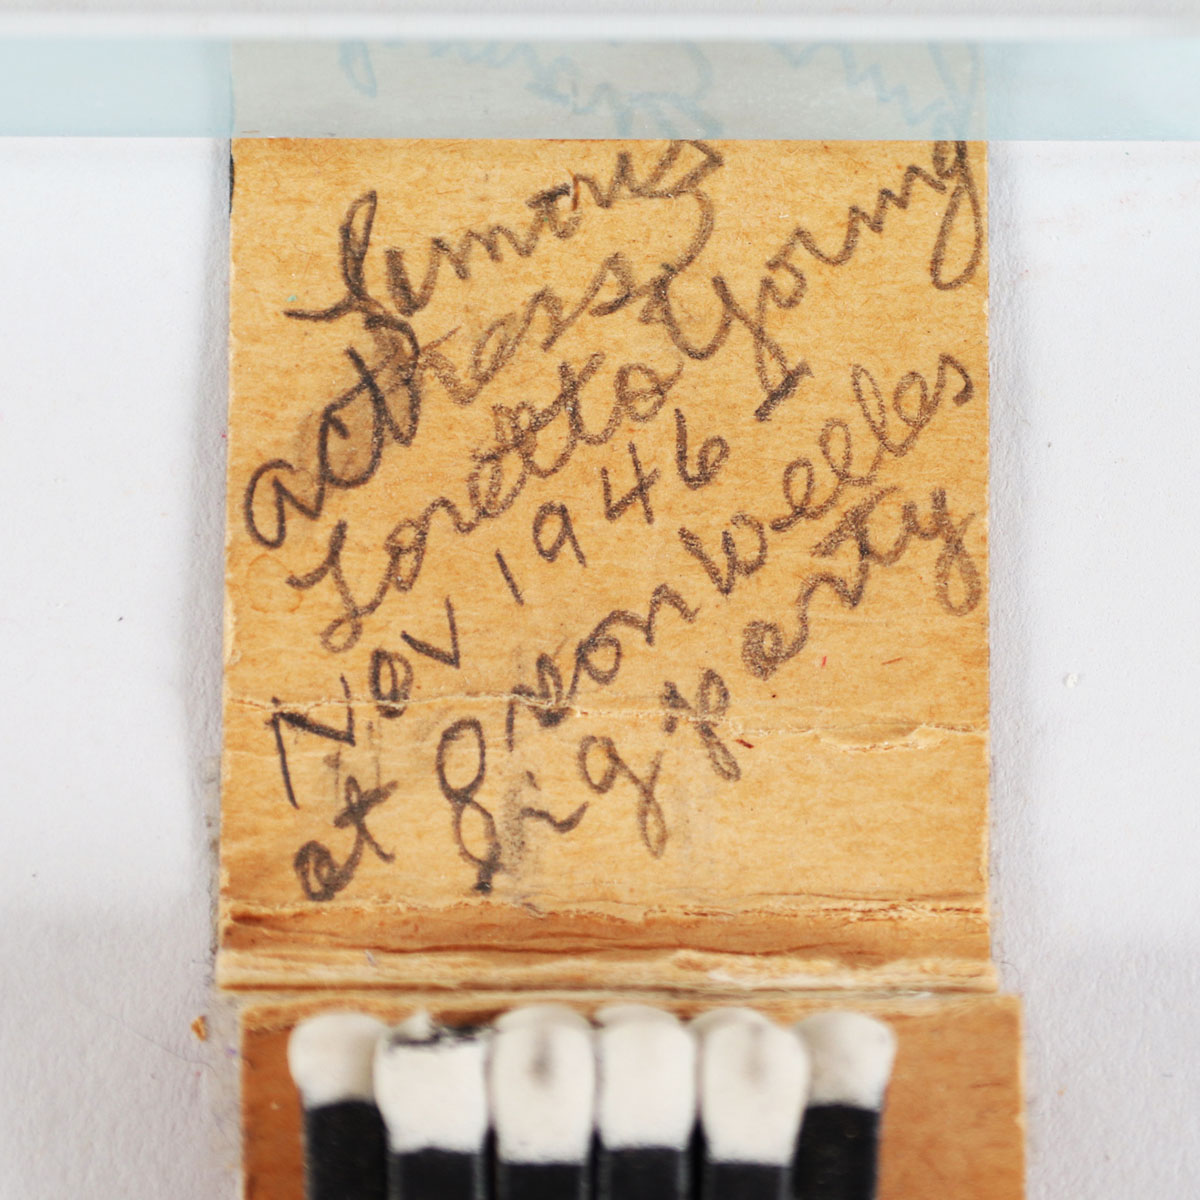 Famous
actress
Loretta Young
Nov 1946
at Orson Welles
Big party